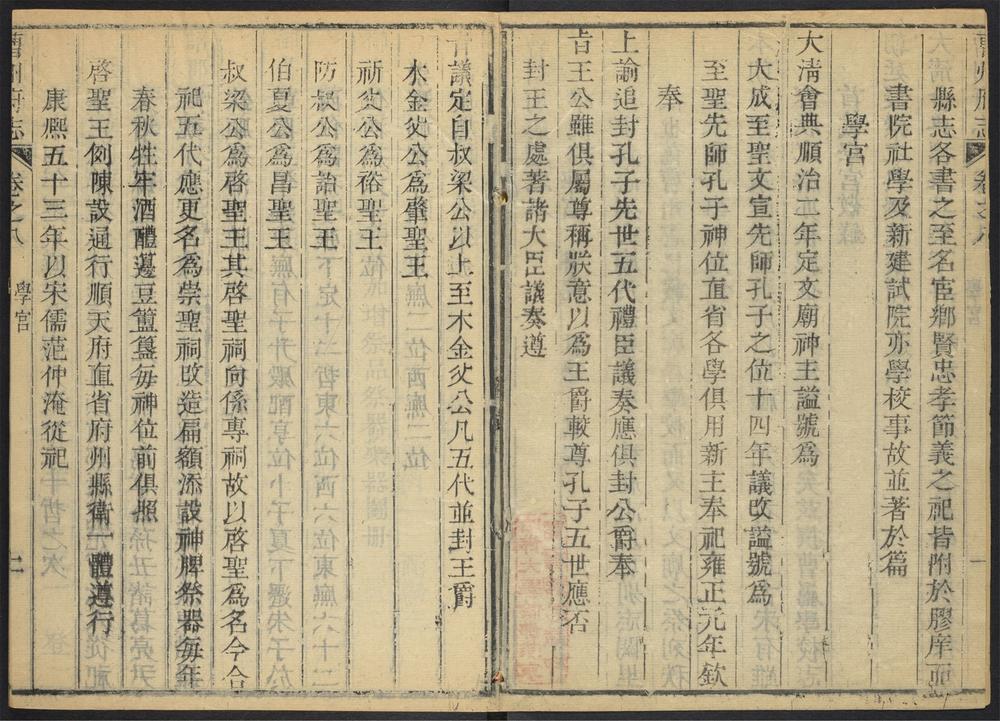 縣志各書之至名宦鄉賢忠孝節義之祀皆附於膠庠而
書院社學及新建試院亦學校事故並著於篇
學宮
大淸會典順治二年定文廟神主謚號爲
大成至聖文宣先師孔子之位十四年議改謚號爲
至聖先師孔子神位直省各學俱用新主奉祀雍正元年欽
奉
上諭追封孔子先世五代禮臣議奏應俱封公爵奉
旨王公雖俱屬尊稱朕意以爲王爵較尊孔子五世應否
封王之處著諸大臣議奏遵
旨議定自叔梁公以上至木金父公凡五代並封王爵
木金父公爲肇聖王
祈父公爲裕聖王
防叔公爲詒聖王
伯夏公爲昌聖王
叔梁公爲啓聖王其啓聖祠向係專祠故以啓聖爲名今合
祀五代應更名爲崇聖祠改造扁額添設神牌祭器每年
春秋牲牢酒醴籩豆簠簋每神位前俱照
啓聖王例陳設通行順天府直省府州縣衛一體遵行
康熙五十三年以宋儒范仲淹從祀
曹州府志
卷之八
學宮